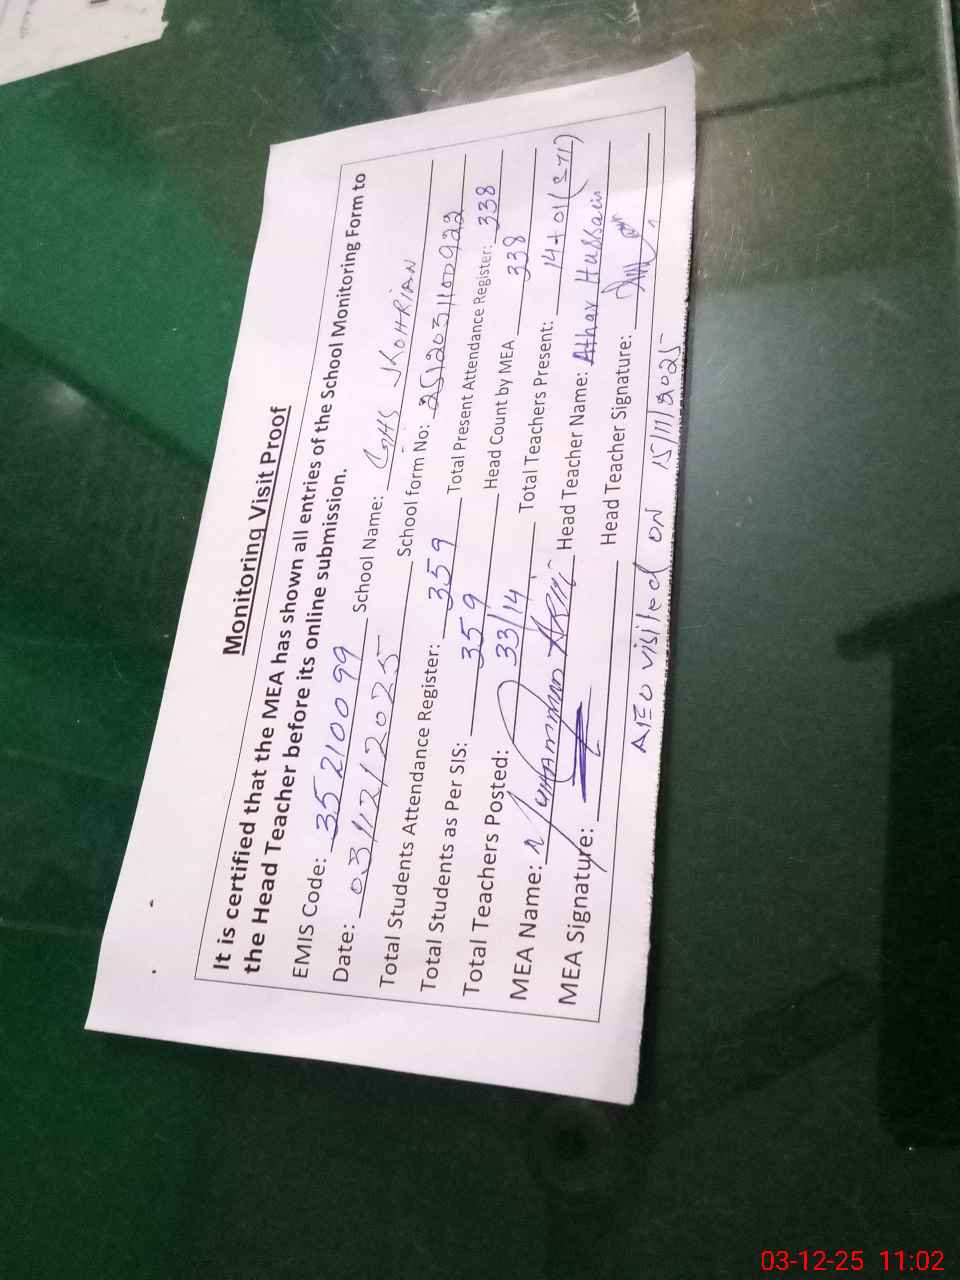 Monitoring Visit Proof
It is certified that the MEA has shown all entries of the School Monitoring Form to
the Head Teacher before its online submission.
EMIS Code: 35210099 School Name: GHS JKOHRIAN
Date: 03/12/2025 School form No: 2512031100923
Total Students Attendance Register: 359 Total Present Attendance Register: 338
Total Students as Per SIS: 359 Head Count by MEA 338
Total Teachers Posted: 33/14 Total Teachers Present: 14+01(STI)
MEA Name: Muhammad Head Teacher Name: Athar Hussain
MEA Signature: Head Teacher Signature:
AEO visited ON 15/11/2025
03-12-25 11:02